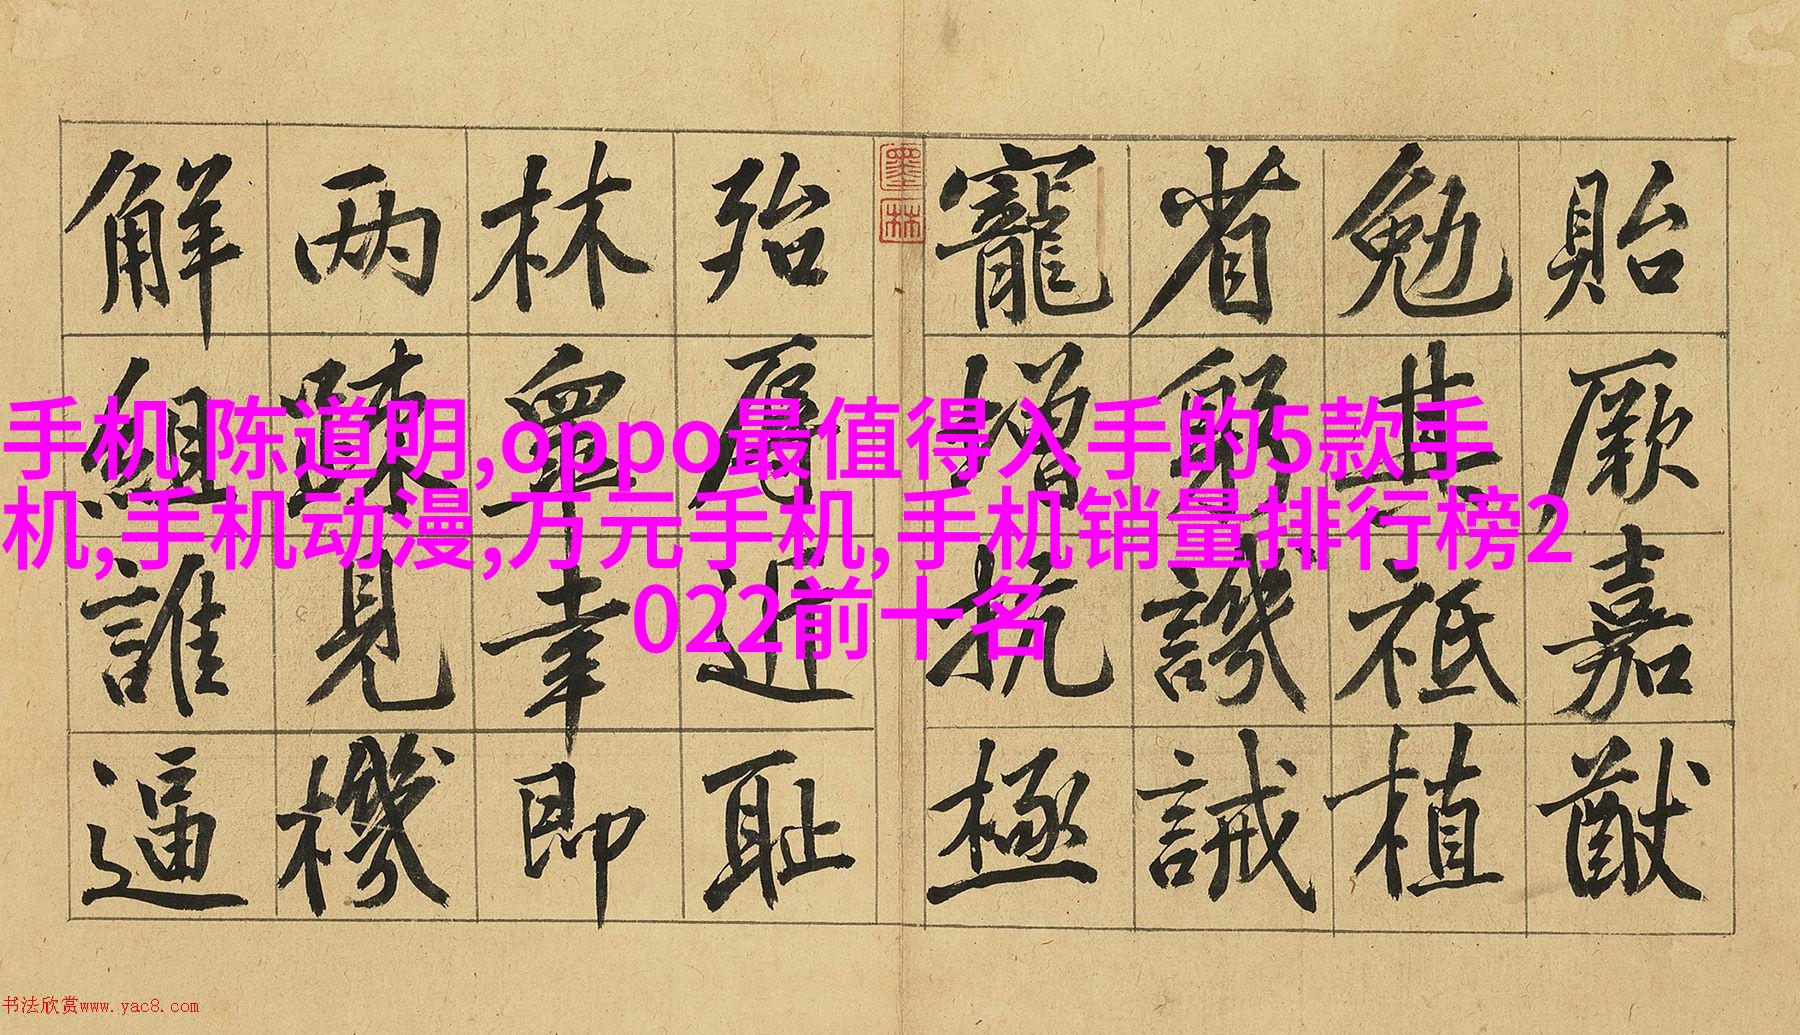 貽厥嘉猷
勉其祗植
省躬譏誡
寵增抗極
墨林
殆辱近耻
林皐幸即
两踈見機
解組誰逼
手机 陈道明,oppo最值得入手的5款手
机,手机动漫,万元手机,手机销量排行榜2
022前十名
书法欣赏www.yac8.com